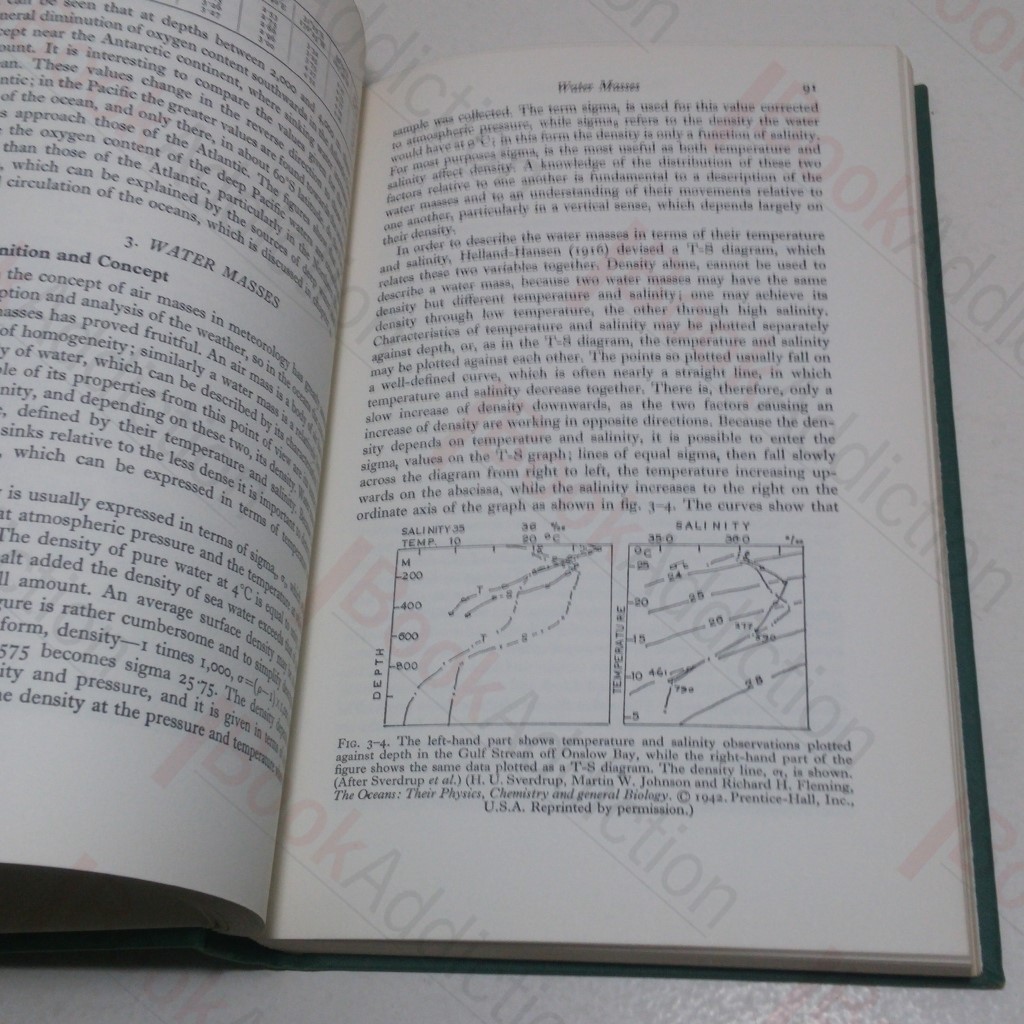 can be seen that at depths between 2,000 and 4,000
neral diminution of oxygen content southwards in the
cept near the Antarctic continent, where sinking
ount. It is interesting to compare the values given
an. These values change in the reverse direction
ntic; in the Pacific the greater values are found
of the ocean, and only there, in about 60°S latitude
s approach those of the Atlantic. The figures
the oxygen content of the deep Pacific water
than those of the Atlantic, particularly in the
, which can be explained by the sources of deep
circulation of the oceans, which is discussed in
3. WATER MASSES
nition and Concept
the concept of air masses in meteorology has
ption and analysis of the weather, so in the ocean
masses has proved fruitful. An air mass is a body of
of homogeneity; similarly a water mass is a
y of water, which can be described by its
ple of its properties from this point of view are
nity, and depending on these two, its density.
, defined by their temperature and salinity.
sinks relative to the less dense it is important
, which can be expressed in terms of temperature
y is usually expressed in terms of sigma, σ, which
at atmospheric pressure and the temperature
The density of pure water at 4°C is equal to
alt added the density of sea water exceeds
ll amount. An average surface density may
gure is rather cumbersome and to simplify
form, density—1 times 1,000, σ=(ρ-1)
575 becomes sigma 25·75. The density
ity and pressure, and it is given in terms
e density at the pressure and temperature
Water Masses 91
sample was collected. The term sigmaₜ is used for this value corrected
to atmospheric pressure, while sigmaₒ refers to the density the water
would have at 0°C; in this form the density is only a function of salinity.
For most purposes sigmaₜ is the most useful as both temperature and
salinity affect density. A knowledge of the distribution of these two
factors relative to one another is fundamental to a description of the
water masses and to an understanding of their movements relative to
one another, particularly in a vertical sense, which depends largely on
their density.
In order to describe the water masses in terms of their temperature
and salinity, Helland-Hansen (1916) devised a T-S diagram, which
relates these two variables together. Density alone, cannot be used to
describe a water mass, because two water masses may have the same
density but different temperature and salinity; one may achieve its
density through low temperature, the other through high salinity.
Characteristics of temperature and salinity may be plotted separately
against depth, or, as in the T-S diagram, the temperature and salinity
may be plotted against each other. The points so plotted usually fall on
a well-defined curve, which is often nearly a straight line, in which
temperature and salinity decrease together. There is, therefore, only a
slow increase of density downwards, as the two factors causing an
increase of density are working in opposite directions. Because the den-
sity depends on temperature and salinity, it is possible to enter the
sigmaₜ values on the T-S graph; lines of equal sigmaₜ then fall slowly
across the diagram from right to left, the temperature increasing up-
wards on the abscissa, while the salinity increases to the right on the
ordinate axis of the graph as shown in fig. 3-4. The curves show that
SALINITY 35 36 ‰
TEMP. 10 20 °C
M
200
400
600
800
DEPTH
T
S
T
S
SALINITY
35·0 36·0 ‰
°C
25
20
15
10
5
TEMPERATURE
24
25
26
28
377
590
461
790
FIG. 3-4. The left-hand part shows temperature and salinity observations plotted
against depth in the Gulf Stream off Onslow Bay, while the right-hand part of the
figure shows the same data plotted as a T-S diagram. The density line, σₜ, is shown.
(After Sverdrup et al.) (H. U. Sverdrup, Martin W. Johnson and Richard H. Fleming,
The Oceans: Their Physics, Chemistry and general Biology. © 1942. Prentice-Hall, Inc.,
U.S.A. Reprinted by permission.)
BookAddiction